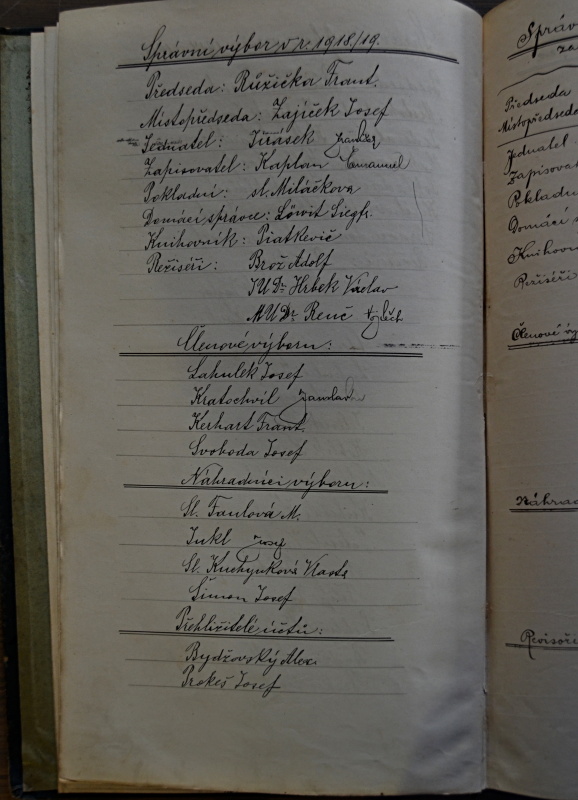 Správní výbor v r. 1918/19.
Předseda: Růžička Frant.
Místopředseda: Zajíček Josef
Jednatel: Jirásek
Zapisovatel: Kaplan Emanuel
Pokladní: sl. Miláčkova
Domácí správce: Löwit Siegfr.
Knihovník: Piatkevič
Režiséři: Brož Adolf
JUDr. Hrbek Václav
MUDr. Renč Vojtěch
Členové výboru:
Lahulek Josef
Kratochvil Jaroslav
Kerhart Frant.
Svoboda Josef
Náhradníci výboru:
Sl. Faulová M.
Inkl Josef
Sl. Kuchynková Vlasta
Šimon Josef
Přehlížitelé účtů:
Bydžovský Alex.
Prokeš Josef
Správ
za
Předseda
Místopředseda
Jednatel
Zapisovat
Pokladn
Domácí
Knihovn
Režiséři
Členové vý
Náhrad
Revisoři